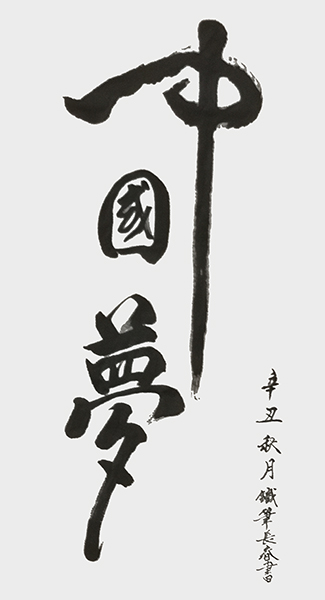 中國夢
辛丑秋月鐵筆長春書